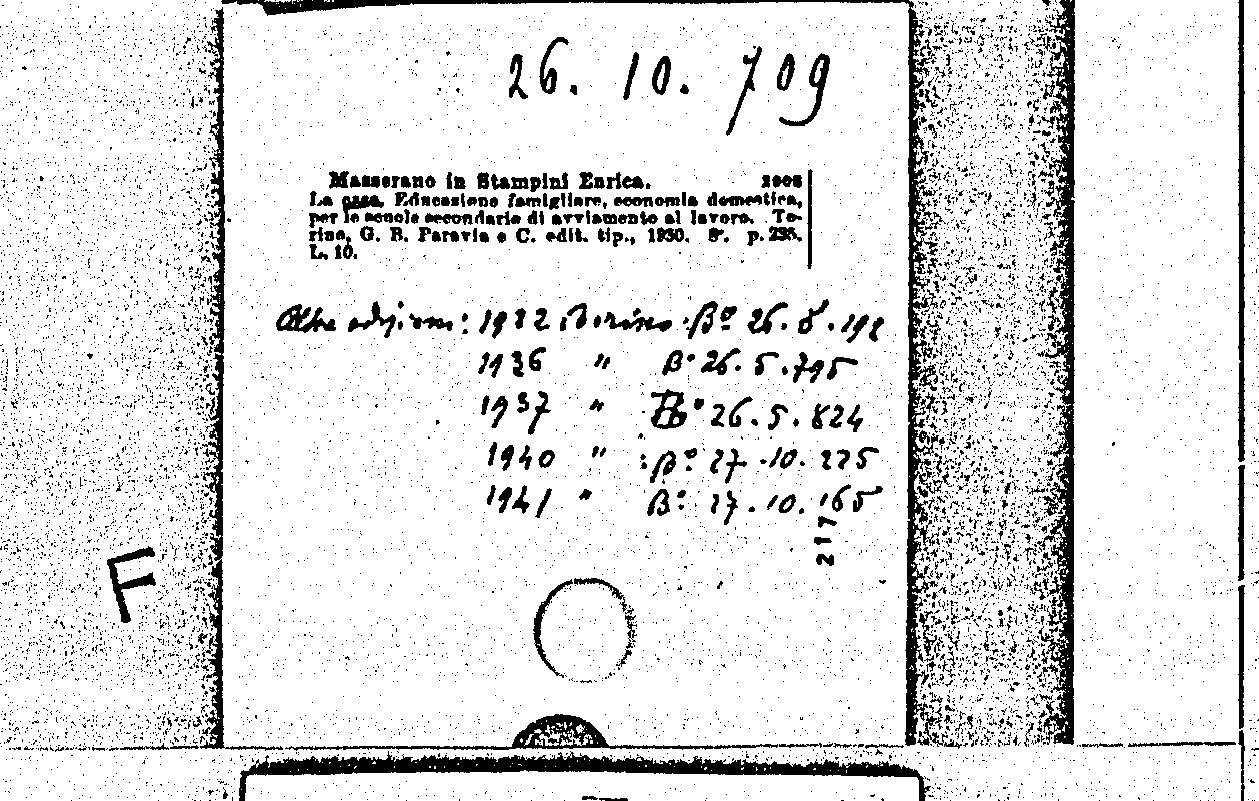 26. 10. 709
Masserano in Stampini Enrica. 2908
La casa. Educazione famigliare, economia domestica,
per le scuole secondarie di avviamento al lavoro. To-
rino, G. B. Paravia e C. edit. tip., 1930. 8°. p. 235.
L. 10.
Altre edizioni: 1932 Torino: B° 26. 8. 192
1936 " B° 26. 5. 795
1937 " B° 26. 5. 824
1940 " : B° 27. 10. 225
1941 " B° 27. 10. 165
217
F